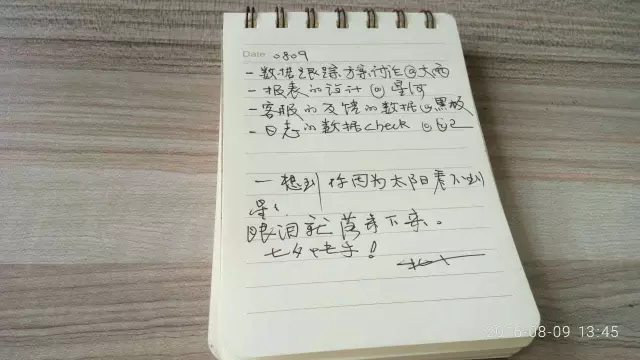 Date 0809
一 数据跟踪方案讨论@大雨
一 报表的设计 @星河
一 客服的反馈的数据@黑板
一 日志的数据check @自己
一 想到你因为太阳看不到
星
眼泪就落了下来。
七夕快乐!
2016-08-09 13:45